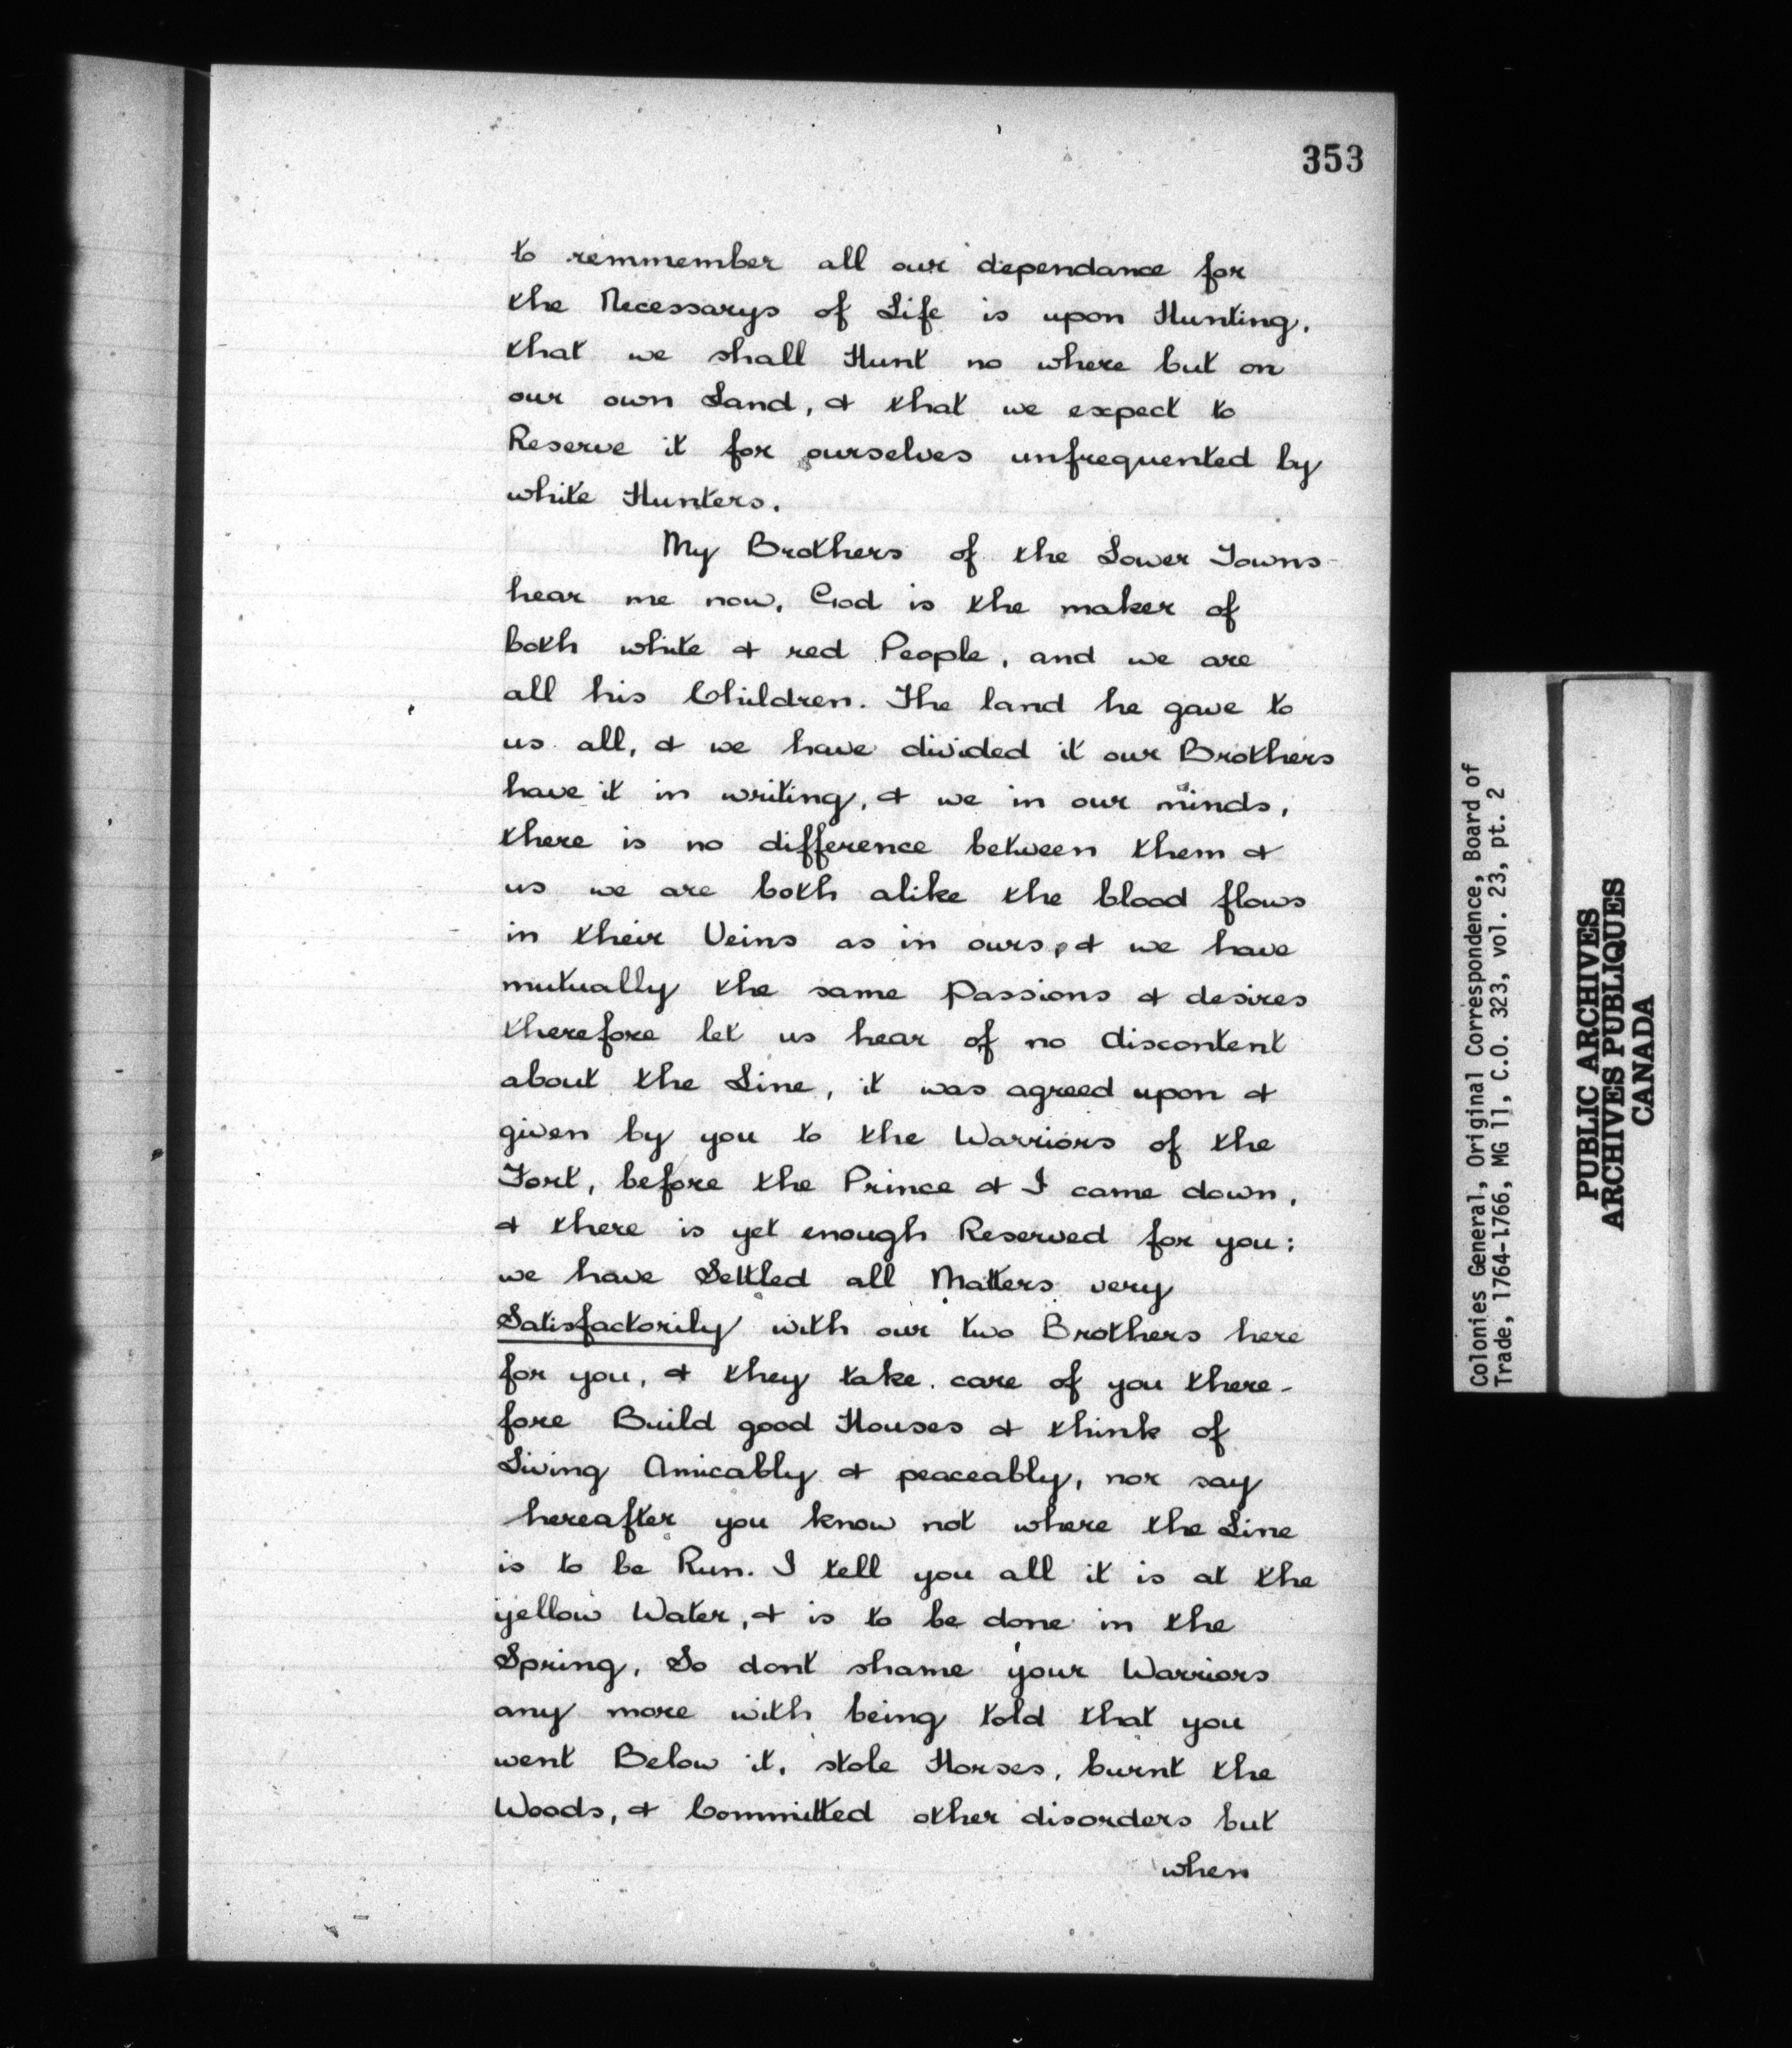 353
to remmember all our dependance for
the Necessarys of Life is upon Hunting.
that we shall Hunt no where but on
our own Land, & that we expect to
Reserve it for ourselves unfrequented by
white Hunters.
My Brothers of the Lower Towns
hear me now, God is the maker of
both white & red People, and we are
all his Children. The land he gave to
us all, & we have divided it our Brothers
have it in writing, & we in our minds,
there is no difference between them &
us we are both alike the blood flows
in their Veins as in ours, & we have
mutually the same Passions & desires
therefore let us hear of no discontent
about the Line, it was agreed upon &
given by you to the Warriors of the
Fort, before the Prince & I came down,
& there is yet enough Reserved for you:
we have Settled all Matters very
Satisfactorily with our two Brothers here
for you, & they take care of you there-
fore Build good Houses & think of
Living Amicably & peaceably, nor say
hereafter you know not where the Line
is to be Run. I tell you all it is at the
yellow Water, & is to be done in the
Spring, So dont shame your Warriors
any more with being told that you
went Below it, stole Horses, burnt the
Woods, & Committed other disorders but
when
Colonies General, Original Correspondence, Board of
Trade, 1764-1766, MG 11, C.O. 323, vol. 23, pt. 2
PUBLIC ARCHIVES
ARCHIVES PUBLIQUES
CANADA